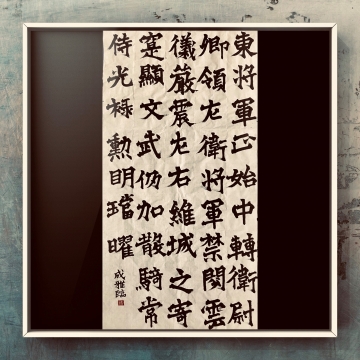 東將軍正始中轉衛尉
卿領左衛將軍禁闕雲
儀嚴震左右維城之寄
寔顯文武仍加散騎常
侍光祿勳明璫曜
成雅臨